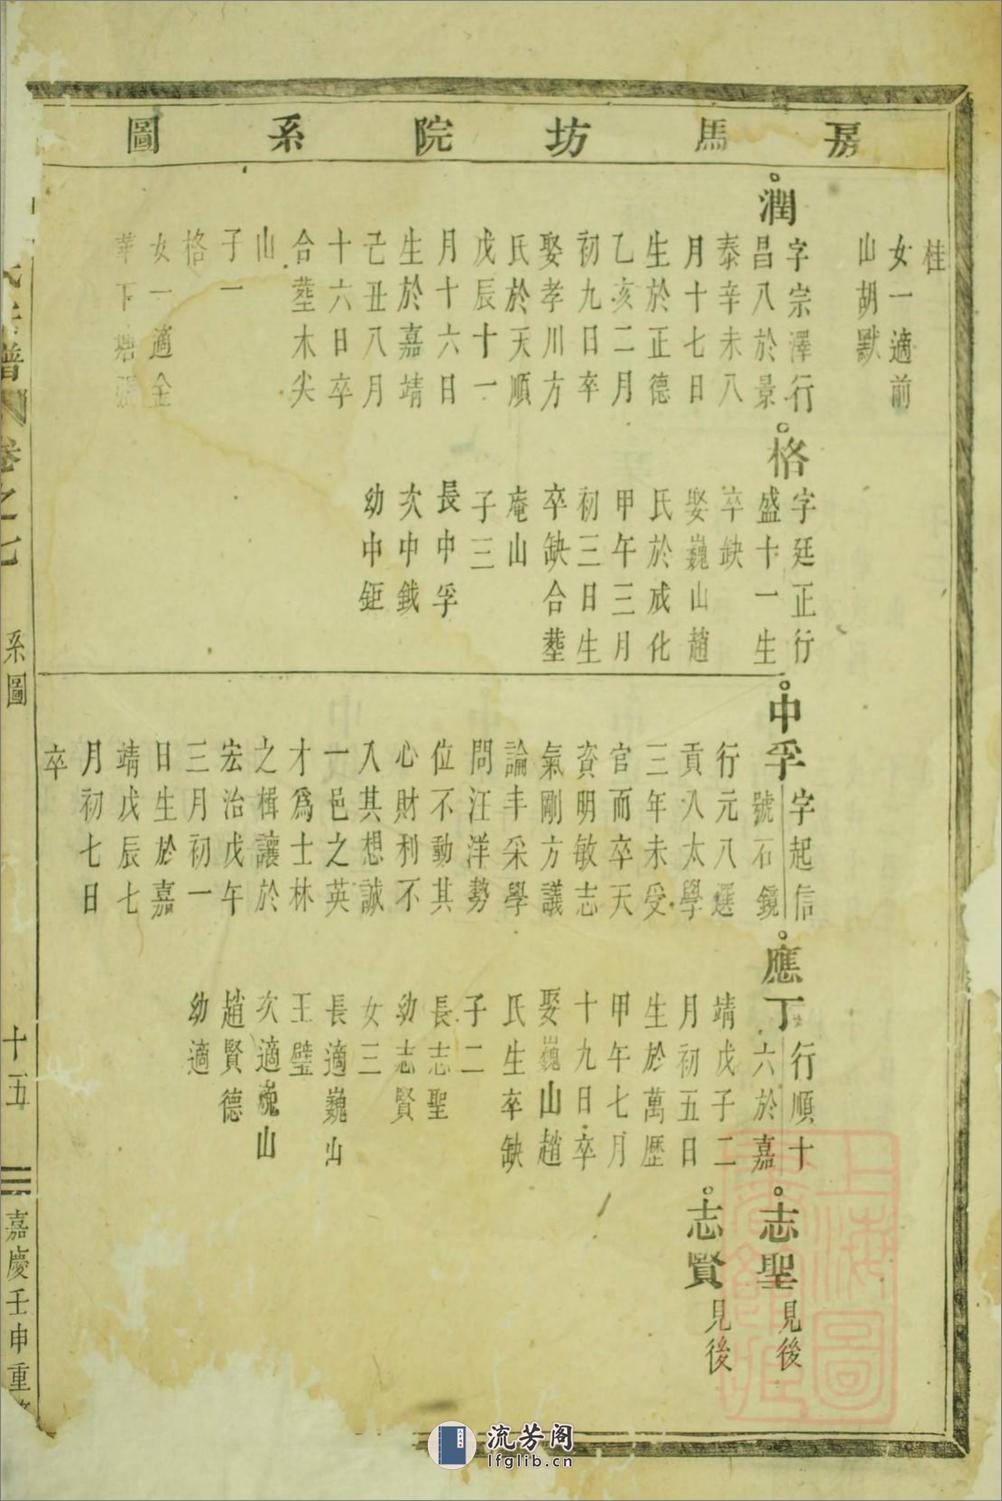 房馬坊院系圖
桂
女一適前
山胡默
潤
字宗澤行
昌八於景
泰辛未八
月十七日
生於正德
乙亥二月
初九日卒
娶孝川方
氏於天順
戊辰十一
月十六日
生於嘉靖
己丑八月
十六日卒
合塟木尖
山
子一
格
女一適金
華下塘張
格
字廷正行
盛十一生
卒缺
娶巍山趙
氏於成化
甲午三月
初三日生
卒缺合塟
庵山
子三
長中孚
次中鉞
幼中鉅
中孚
字起信
號石鏡
行元八選
貢入太學
三年未受
官而卒天
資明敏志
氣剛方議
論丰采學
問汪洋勢
位不動其
心財利不
入其想誠
一邑之英
才為士林
之楫讓於
宏治戊午
三月初一
日生於嘉
靖戊辰七
月初七日
卒
應丁
行順十
六於嘉
靖戊子二
月初五日
生於萬歷
甲午七月
十九日卒
娶巍山趙
氏生卒缺
子二
長志聖
幼志賢
女三
長適巍山
王璧
次適巍山
趙賢德
幼適
志聖
見後
志賢
見後
譜
卷之七
系圖
十五
嘉慶壬申重
上海圖
流芳阁
lfglib.cn